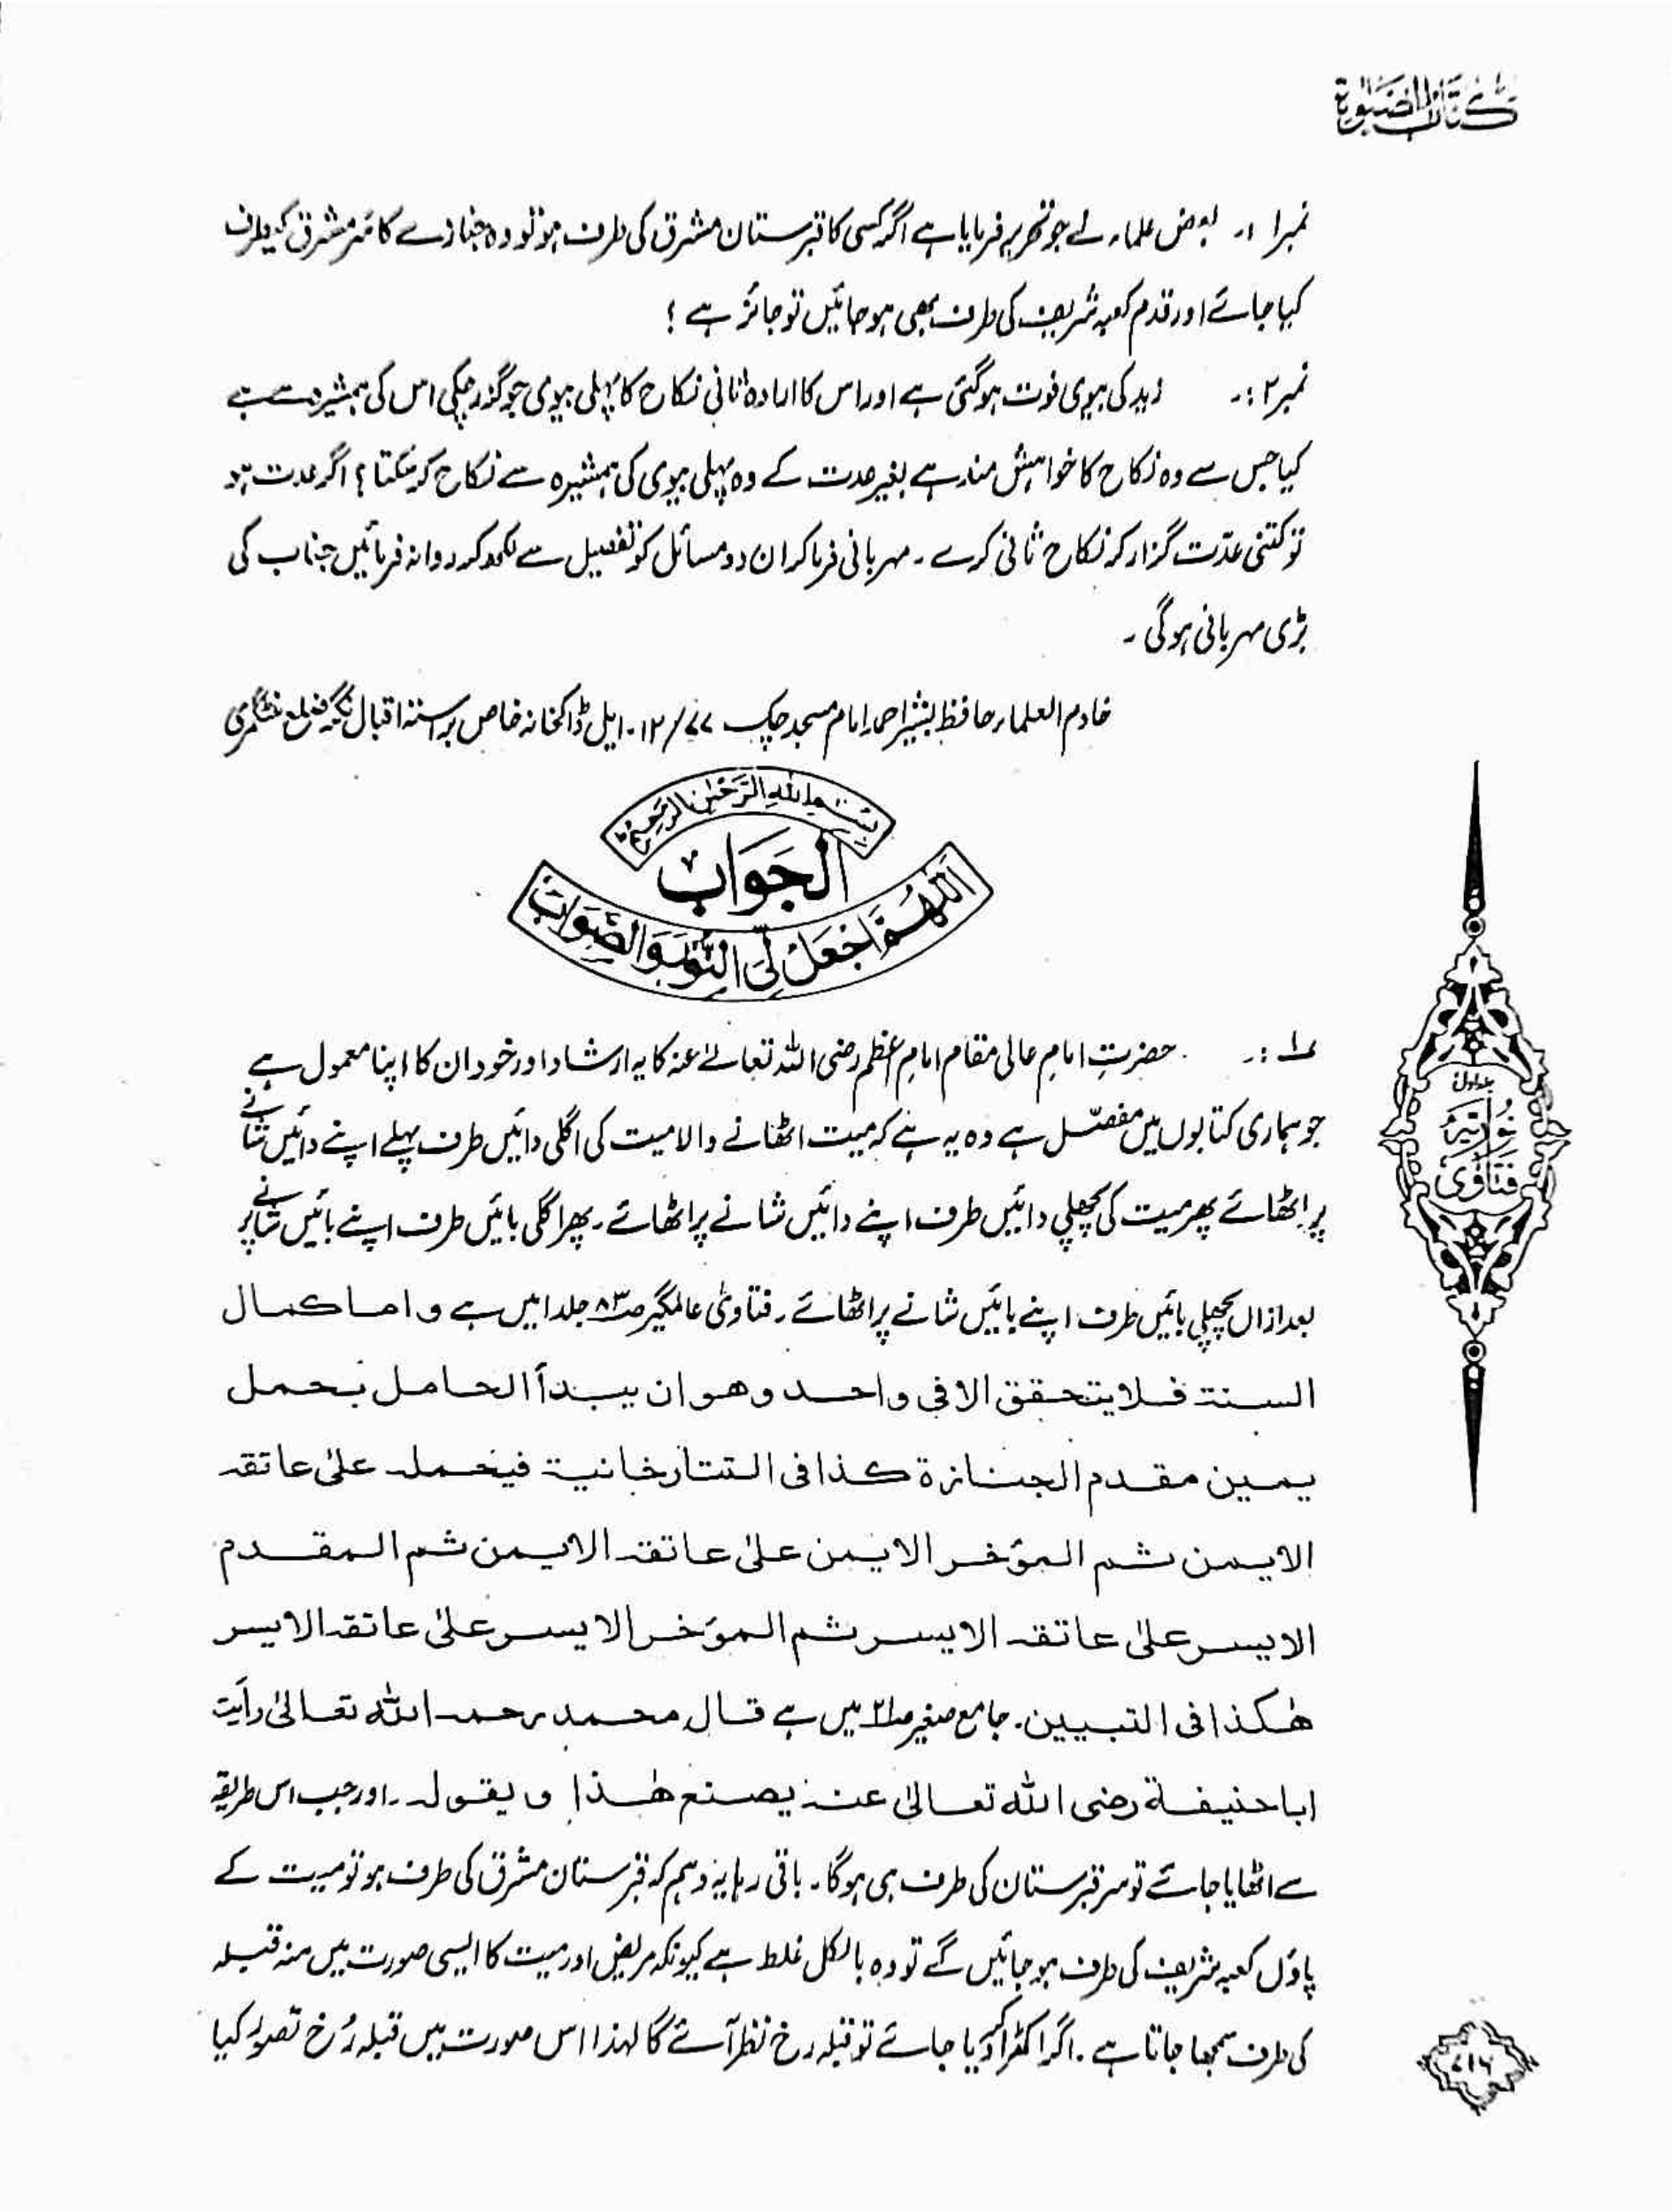 کتاب الصلوٰۃ
نمبر۱ :۔ بعض علماء نے جو تحریر فرمایا ہے اگر کسی کا قبرستان مشرق کی طرف ہو تو وہ جنازے کا سَر مشرق کیطرف
کیا جائے اور قدم کعبہ شریف کی طرف بھی ہو جائیں تو جائز ہے ؟
نمبر۲ :۔ زید کی بیوی فوت ہوگئی ہے اور اس کا ارادہ ثانی نکاح کا پہلی بیوی جو گذر چکی اس کی ہمشیرہ سے ہے
کیا جس سے وہ نکاح کا خواہش مند ہے بغیر عدت کے وہ پہلی بیوی کی ہمشیرہ سے نکاح کر سکتا ؟ اگر عدت ہو
تو کتنی عدّت گزار کر نکاح ثانی کرے ۔ مہربانی فرما کر ان دو مسائل کو تفصیل سے لکھ کر روانہ فرمائیں جناب کی
بڑی مہربانی ہوگی ۔
خادم العلماء حافظ بشیر احمد امام مسجد چک ۷۷/۱۲۔ ایل ڈاکخانہ خاص براستہ اقبال نگر ضلع منٹگمری
بِسْمِ اللهِ الرَّحْمٰنِ الرَّحِيْمِ
الجَوَاب
اَللّٰهُمَّ اجْعَلْ لِّیَ النُّوْرَ وَالصَّوَابَ
۱ :۔ حضرتِ امامِ عالی مقام امامِ اعظم رضی اللہ تعالےٰ عنہ کا یہ ارشاد اور خود ان کا اپنا معمول ہے
جو ہماری کتابوں میں مفصّل ہے وہ یہ ہے کہ میت اٹھانے والا میت کی اگلی دائیں طرف پہلے اپنے دائیں شانے
پر اٹھائے پھر میت کی پچھلی دائیں طرف اپنے دائیں شانے پر اٹھائے ۔ پھر اگلی بائیں طرف اپنے بائیں شانے پر
بعد ازاں پچھلی بائیں طرف اپنے بائیں شانے پر اٹھائے ۔ فتاویٰ عالمگیر صـ۸۳ جلد ا میں ہے واما کمال
السنة فلا يتحقق الا فی واحد وهو ان يبدأ الحامل بحمل
يمين مقدم الجنازة كذا فی التتارخانية فيحمله علیٰ عاتقه
الايمن ثم المؤخر الايمن علیٰ عاتقه الايمن ثم المقدم
الايسر علیٰ عاتقه الايسر ثم المؤخر الايسر علیٰ عاتقه الايسر
هٰكذا فی التبيين۔ جامع صغیر میں ہے قال محمد رحمه الله تعالیٰ رأيت
ابا حنيفة رضی الله تعالیٰ عنه يصنع هٰذا ويقوله ۔ اور جب اس طریقہ
سے اٹھایا جائے تو سر قبرستان کی طرف ہی ہوگا۔ باقی رہا یہ وہم کہ قبرستان مشرق کی طرف ہو تو میت کے
پاؤں کعبہ شریف کی طرف ہو جائیں گے تو وہ بالکل غلط ہے کیونکہ مریض اور میت کا ایسی صورت میں منہ قبلہ
کی طرف سمجھا جاتا ہے ۔ اگر اکٹھا کر دیا جائے تو قبلہ رخ نظر آئے گا لہٰذا اس صورت میں قبلہ رُخ تصور کیا
جلد اول
نُوْرِیَّہ
فتاویٰ
۷۱۶